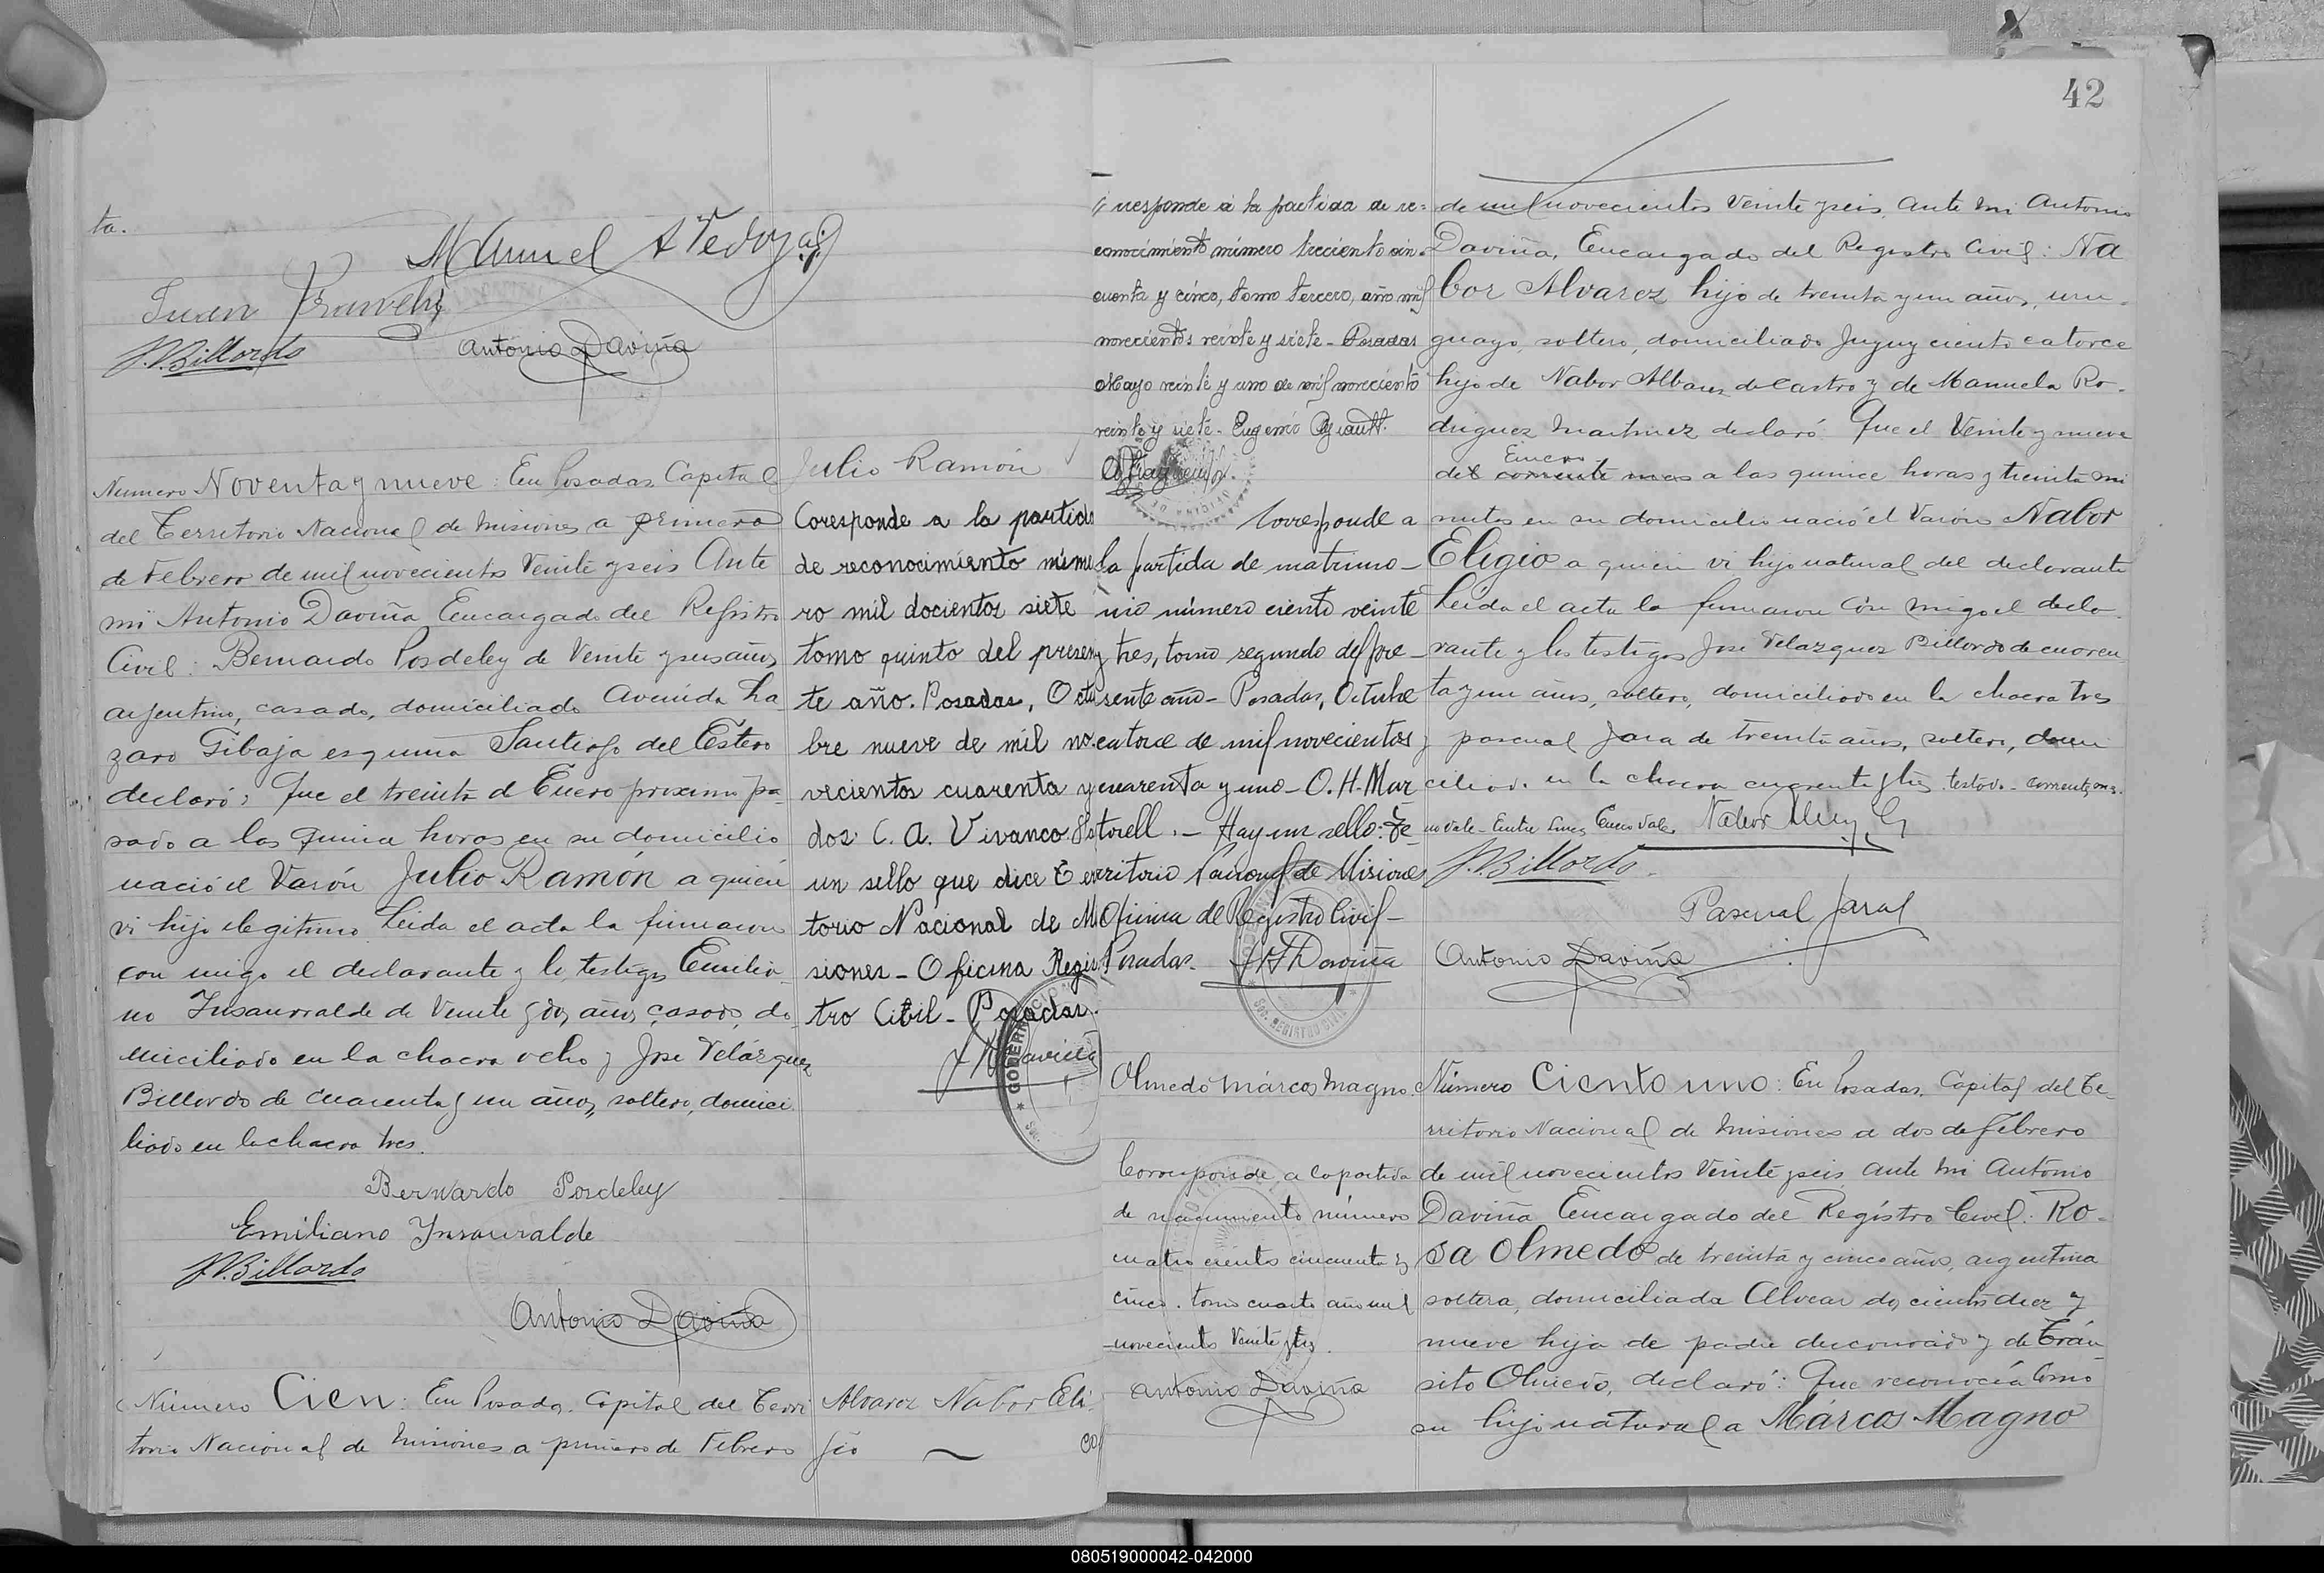 ta.
Manuel A. Bedoya
Juan
J.V. Billordo
Antonio Daviña
Numero Noventa y nueve: En Posadas, Capital
del Territorio Nacional de Misiones a primero
de Febrero de mil novecientos Veinte y seis Ante
mi Antonio Daviña Encargado del Registro
Civil: Bernardo Posdeley de Veinte y seis años,
argentino, casado, domiciliado Avenida La
zaro Gibaja esquina Santiago del Estero
declaró: Que el treinta d Enero proximo pa-
sado a las quince horas en su domicilio
nació el Varón Julio Ramón a quien
vi hijo legitimo. Leida el acta la firmaron
con migo el declarante y lo testigos Emilia-
no Insaurralde de Veinte y dos años, casado, do
miciliado en la chacra ocho y Jose Velázquez
Billordo de cuarenta y un años, soltero, domici
liado en la chacra tres.
Bernardo Posdeley
Emiliano Insauralde
J.V. Billordo
Antonio Daviña
Número Cien: En Posadas, Capital del Terri
torio Nacional de Misiones a primero de Febrero
Julio Ramón
Coresponde a la partida
de reconocimiento núme
ro mil docientos siete
tomo quinto del presen
te año. Posadas, Octu
bre nueve de mil no
vecientos cuarenta y
dos C. A. Vivanco. Hay
un sello que dice Terri
torio Nacional de Mi
siones - Oficina Regis
tro Civil - Posadas.
GOBERNACION
Alvarez Nabor Eli
gio
Co
42
rresponde á la partida de re-
conocimiento número treciento cin-
cuenta y cinco, tomo tercero, año mil
novecientos veinte y siete - Posadas
Mayo veinte y uno de mil novecientos
veinte y siete - Eugenio
Corresponde a
la partida de matrimo-
nio número ciento veinte
y tres, tomo segundo del pre-
sente año - Posadas, Octubre
catorce de mil novecientos
cuarenta y uno - O. H. Mar
torell. - Hay un sello: Te
rritorio Nacional de Misiones
Oficina del Registro Civil -
Posadas. Daviña
REGISTRO CIVIL
de mil novecientos Veinte y seis, ante mi Antonio
Daviña, Encargado del Registro Civil: Na
bor Alvarez hijo de treinta y un años, uru-
guayo, soltero, domiciliado Jujuy ciento catorce
hijo de Nabor Albares de Castro y de Manuela Ro-
driguez Martinez declaró: Que el Veinte y nueve
Enero
del corriente mes a las quince horas y treinta mi
nutos en su domicilio nació el Varón Nabor
Eligio a quien vi hijo natural del declarante
Leida el acta la firmaron con migo el decla-
rante y los testigos Jose Velazquez Billordo de cuaren
ta y un años, soltero, domiciliado en la chacra tres
y pascual Jara de treinta años, soltero, domi
ciliado en la chacra cuarenta y tres. testado - corriente mes.
no vale - Entre lineas Enero Vale. Nabor
J.V. Billordo
Pascual Jara
Antonio Daviña
Olmedo Márcos Magno.
Corresponde a la partida
de nacimiento número
cuatro cientos cincuenta y
cinco. tomo cuarto año mil
novecientos Veinte y tres.
Antonio Daviña
Número Ciento uno: En Posadas, Capital del Te-
rritorio Nacional de Misiones a dos de Febrero
de mil novecientos Veinte y seis ante mi Antonio
Daviña Encargado del Registro Civil: Ro-
sa Olmedo de treinta y cinco años, argentina
soltera, domiciliada Alvear dos cientos diez y
nueve hija de padre desconocido y de Trán
sito Olmedo, declaró: Que reconocía como
su hijo natural a Márcos Magno
080519000042-042000